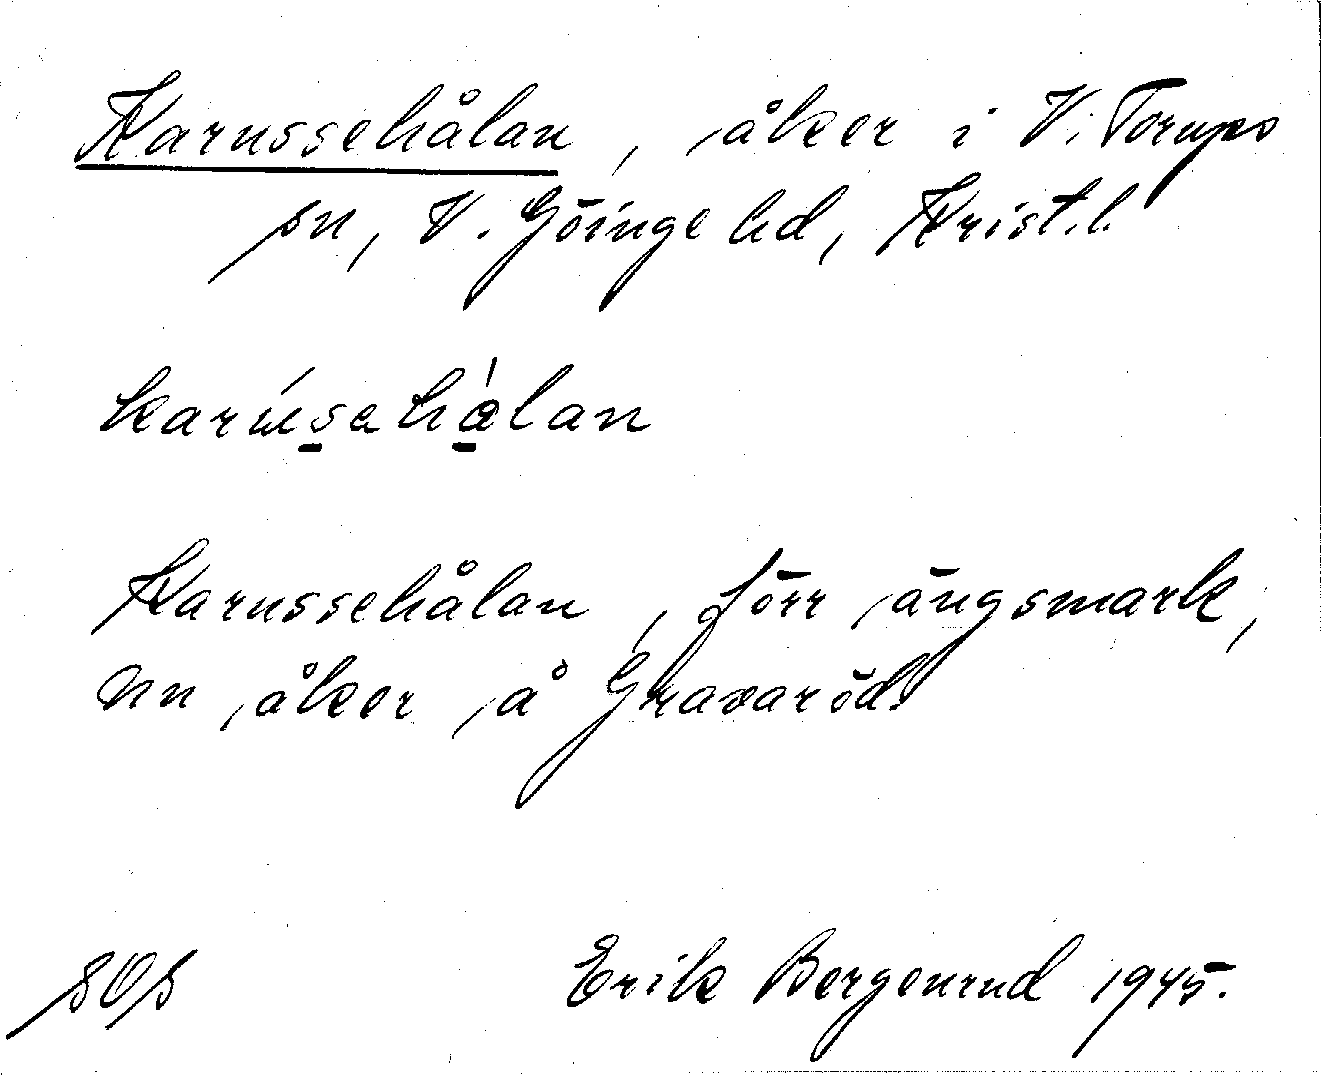 Karussehålan, åker i V. Torups
sn, V. Göinge hd, Krist. l.
karúsahálan
Karussehålan, förr ängsmark,
nu åker å Gravaröd.
SOS Erik Bergenrud 1945.